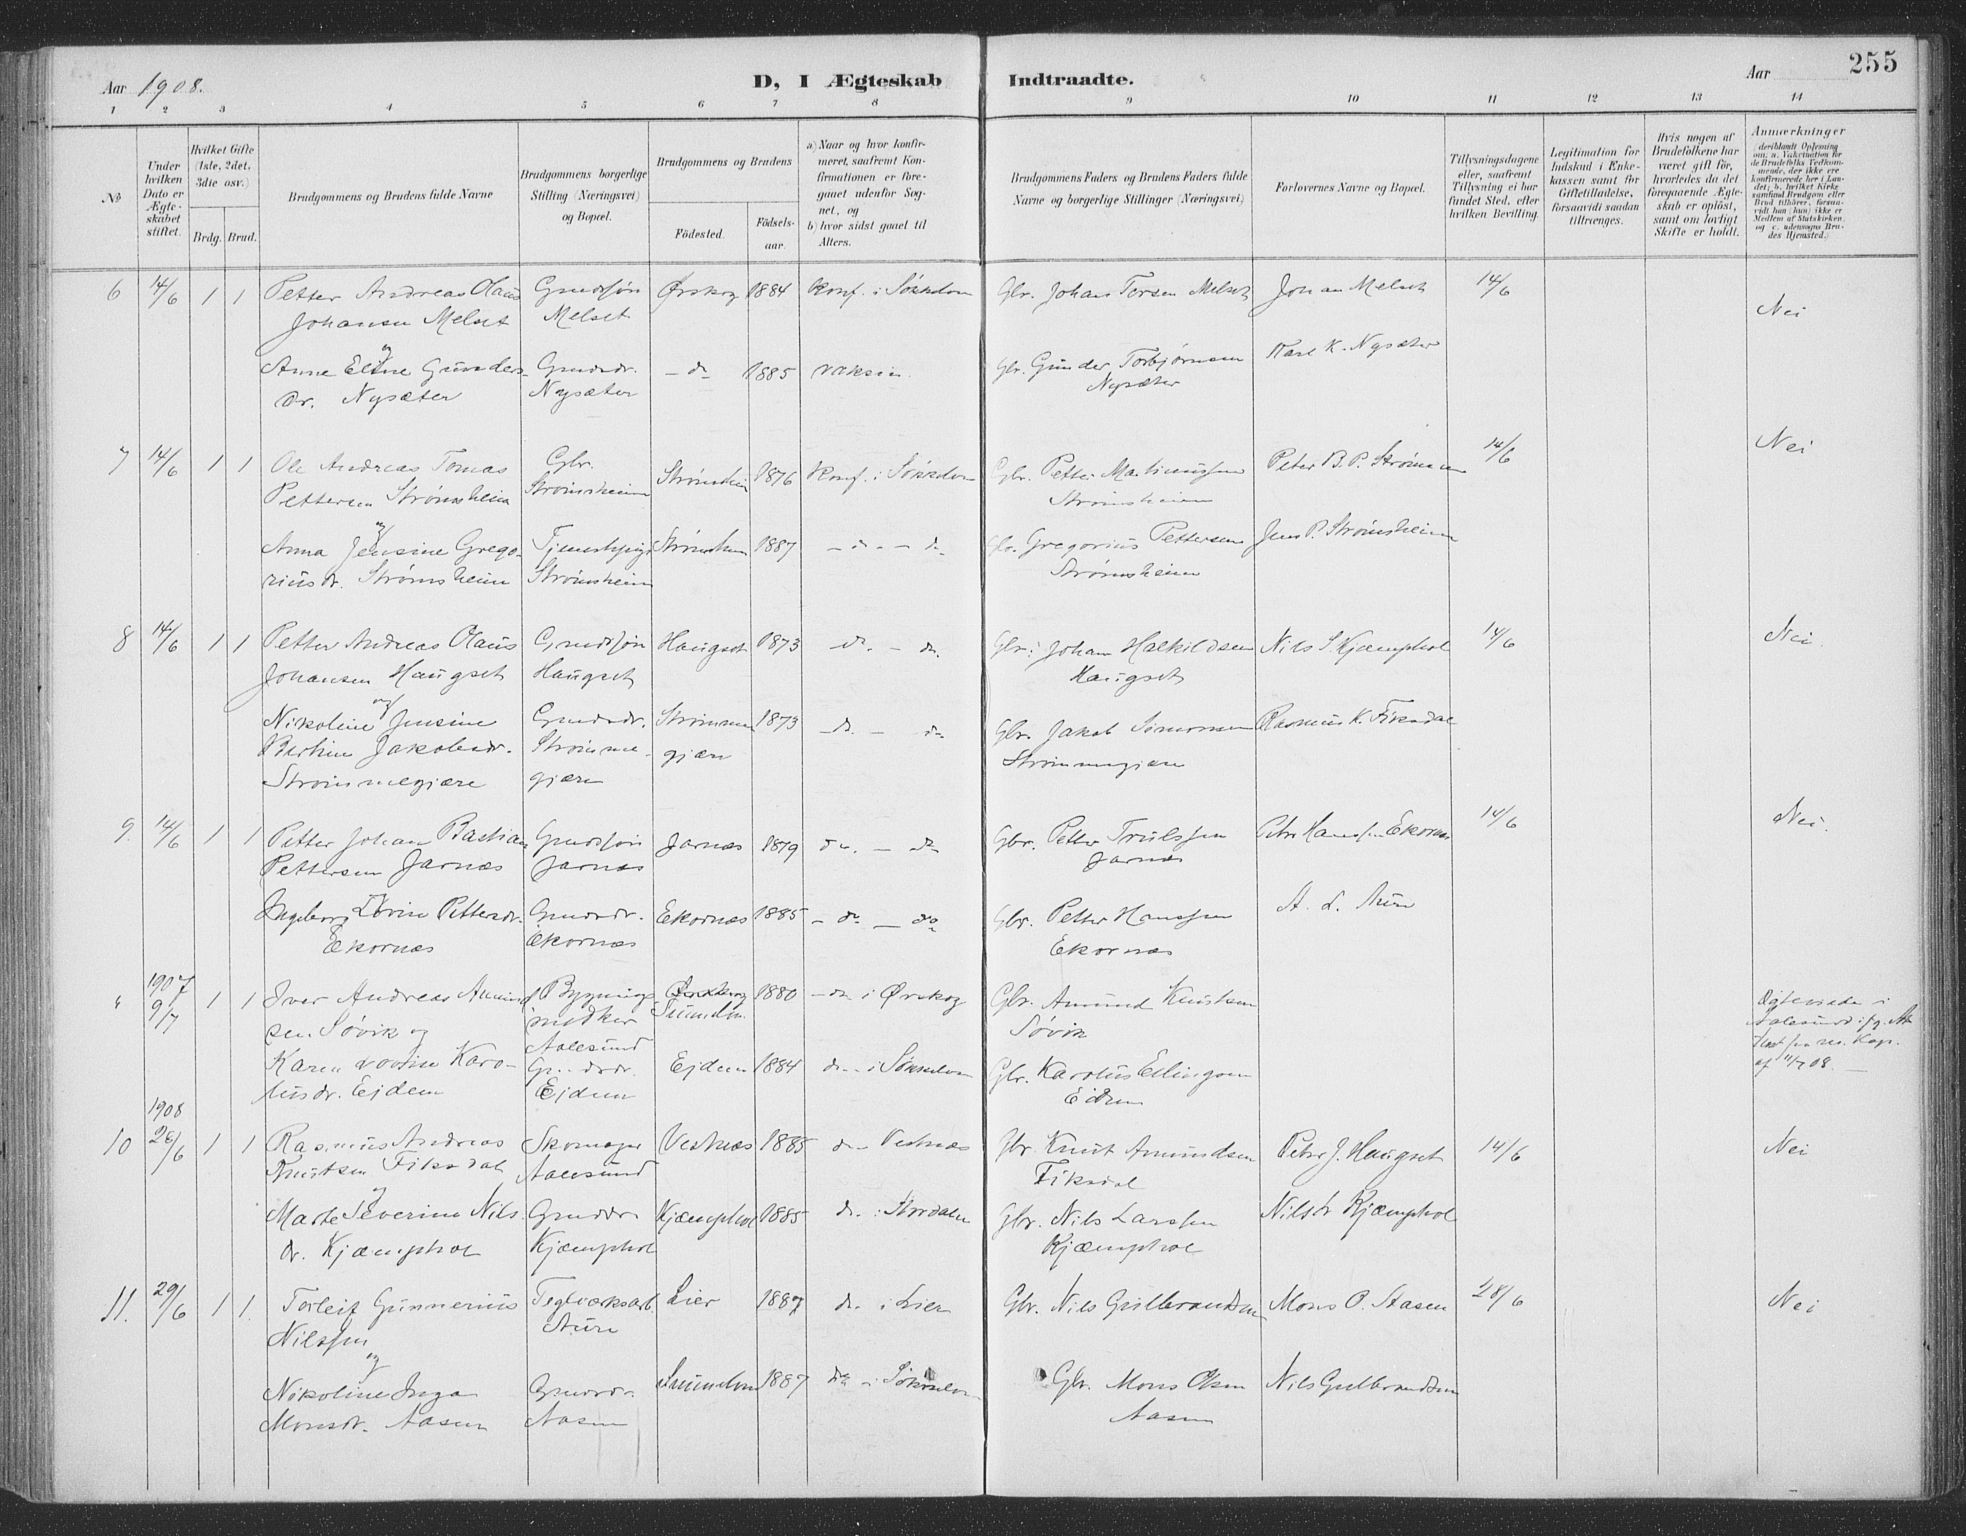 Aar 1908.
D, I Ægteskab Indtraadte.
Aar
255
1 2 3 4 5 6 7 8 9 10 11 12 13 14
No
Under hvilken Dato er Ægteskabet stiftet.
Hvilket Gifte (1ste, 2det, 3die osv.)
Brdg. Brud.
Brudgommens og Brudens fulde Navne
Brudgommens borgerlige Stilling (Næringsvei) og Bopæl.
Brudgommens og Brudens
Födested. Födselsaar.
a) Naar og hvor konfirmeret, saafremt Konfirmationen er foregaaet udenfor Sognet, og
b) hvor sidst gaaet til Alters.
Brudgommens Faders og Brudens Faders fulde Navne og borgerlige Stillinger (Næringsvei)
Forlovernes Navne og Bopæl.
Tillysningsdagene eller, saafremt Tillysning ei har fundet Sted, efter hvilken Bevilling.
Legitimation for Indskud i Enkekassen samt for Giftetilladelse, forsaavidt saadan tiltrænges.
Hvis nogen af Brudefolkene har været gift før, hvorledes da det foregaaende Ægteskab er oplöst, samt om lovligt Skifte er holdt.
Anmærkninger
6 14/6 1 1 Petter Andreas Olaus Grmdsøn Ørskog 1884 Konf. i Søkkelven Gbr. Johan Torsen Melset Johan Melset 14/6 Nei
Johansen Melset Melset
og
Anne Eline Gunders- Grmdsdr. - do 1885 vaksin. Gbr. Gunder Torbjørnsen Karl K. Nysæter
dr. Nysæter Nysæter Nysæter
7 14/6 1 1 Ole Andreas Tomas Gbr. Strømsheim 1876 Konf. i Søkkelven Gbr. Petter Martinussen Peter B. P. Strømmen 14/6 Nei
Pettersen Strømsheim Strømsheim Strømsheim
og
Anna Jensine Grego- Strømsheim 1887 - do - do Gbr. Gregorius Pettersen Jens P. Strømsheim
riusdr. Strømsheim Strømsheim Strømsheim
8 14/6 1 1 Petter Andreas Olaus Grmdsøn Haugset 1873 do. - do. Gbr. Johan Halkildsen Nils S. Kjæmphol 14/6 Nei.
Johansen Haugset Haugset Haugset
og
Nikoline Jensine Grmdsdr. Strømme 1873 - do. - do Gbr. Jakob Simonsen Rasmus K. Fiksdal
Jakobsdr. Strømme- gjære Strømmegjære
Strømmegjære gjære
9. 14/6 1 1 Petter Johan Bastian Grmdsøn Jarnæs 1879 do. - do Gbr. Petter Trulssen Petter Hanssen Ekornæs 14/6 Nei.
Pettersen Jarnæs Jarnæs Jarnæs
og
Ingeborg Lovise Pettersdr. Grmdsdr. Ekornæs 1885 - do - do Gbr. Petter Hanssen A. L. Aure
Ekornæs Ekornæs Ekornæs
" 1907 9/7 1 1 Iver Andreas Amund- Bygnings- 1880 - do i Ørskog Gbr. Amund Knutsen
sen Søvik og Aalesund Søvik
Karen Karo- Ejdem 1884 do - i Søkkelven Gbr. Karolus Ellingsen
lusdr. Ejdem Ejdem Eidem
Ægteviede i Aalesund
af 11/7 08.
1908
10 28/6 1 1 Rasmus Andreas Skomager Vestnæs 1885 do - Vestnæs Gbr. Knut Amundsen Petter J. Haugset 14/6 Nei
Knutsen Fiksdal Aalesund Fiksdal
og
Marte Severine Nils- Grmdsdr. Kjæmphol 1885 do. i Stordalen Gbr. Nils Larssen Nils Kjæmphol
dr. Kjæmphol Kjæmphol Kjæmphol
11. 29/6 1 1. Torleif Gunnerius Teglværksarb. Lier 1887 do. i Lier Gbr. Nils Gulbrandsen Mons O. Aasen 28/6 Nei
Nilssen Aure
og
Nikoline Inga Grmdsdr. 1887 do - i Søkkelven Gbr. Mons Olsen Nils Gulbrandsen
Monsdr. Aasen Aasen Aasen